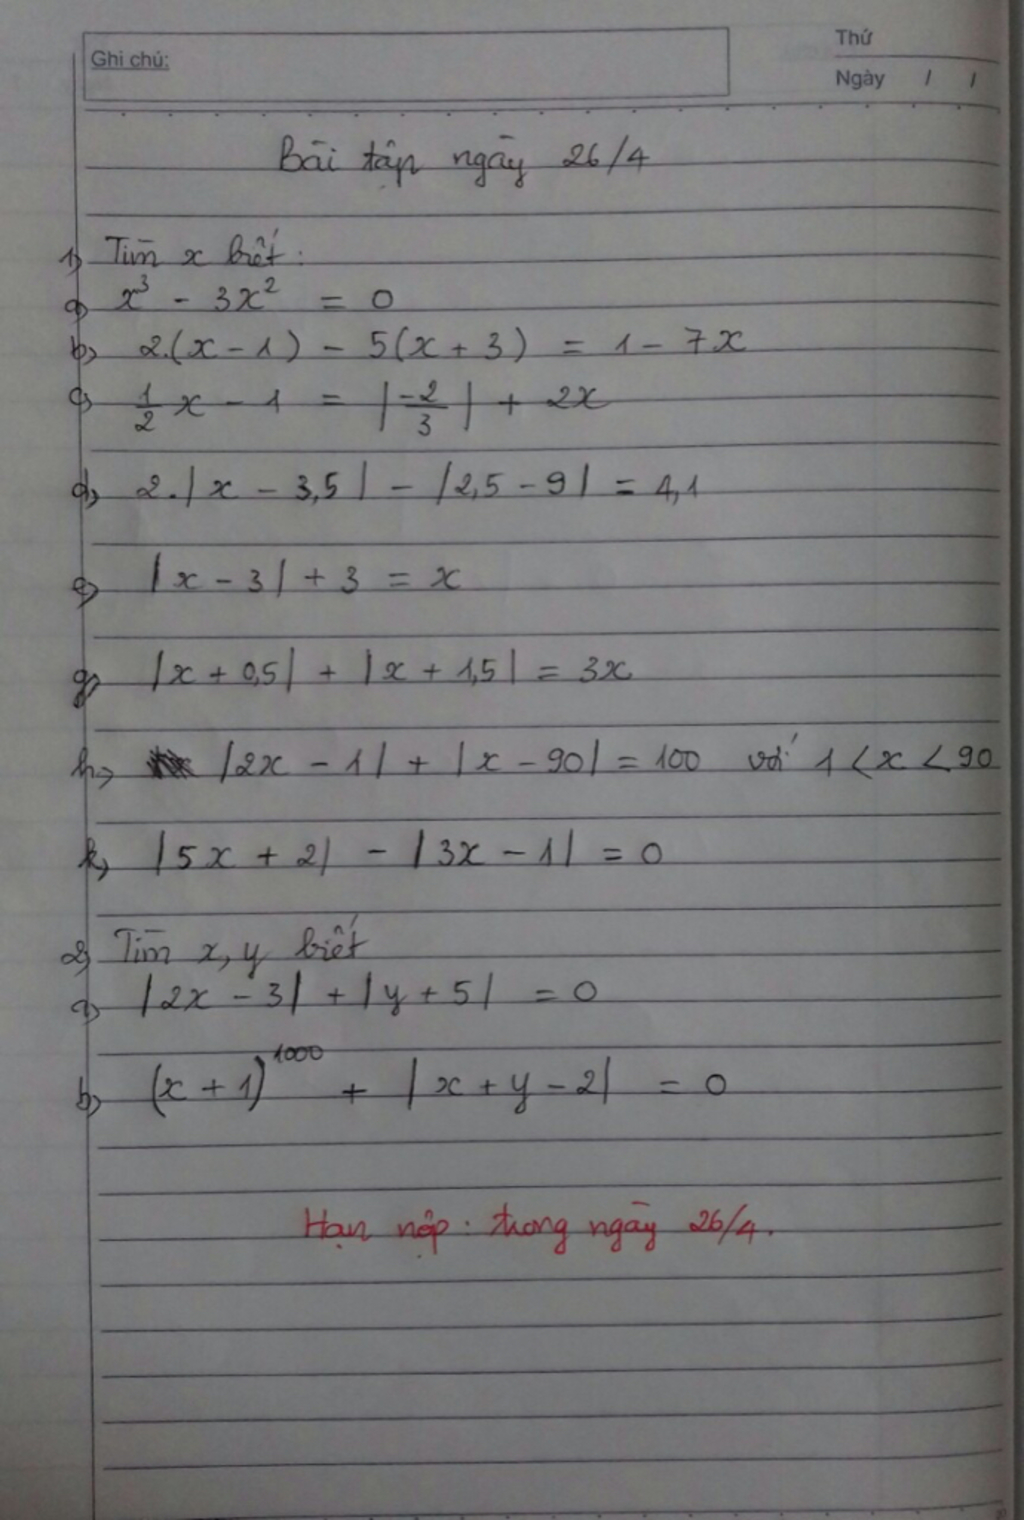 Ghi chú:
Thứ
Ngày / /
Bài tập ngày 26/4
1) Tìm x biết:
a) x³ - 3x² = 0
b) 2.(x - 1) - 5(x + 3) = 1 - 7x
c) 1/2 x - 1 = |-2/3| + 2x
d) 2.|x - 3,5| - |2,5 - 9| = 4,1
e) |x - 3| + 3 = x
g) |x + 0,5| + |x + 1,5| = 3x
h) |2x - 1| + |x - 90| = 100 với 1 < x < 90
k) |5x + 2| - |3x - 1| = 0
2) Tìm x, y biết
a) |2x - 3| + |y + 5| = 0
b) (x + 1)¹⁰⁰⁰ + |x + y - 2| = 0
Hạn nộp: trong ngày 26/4.